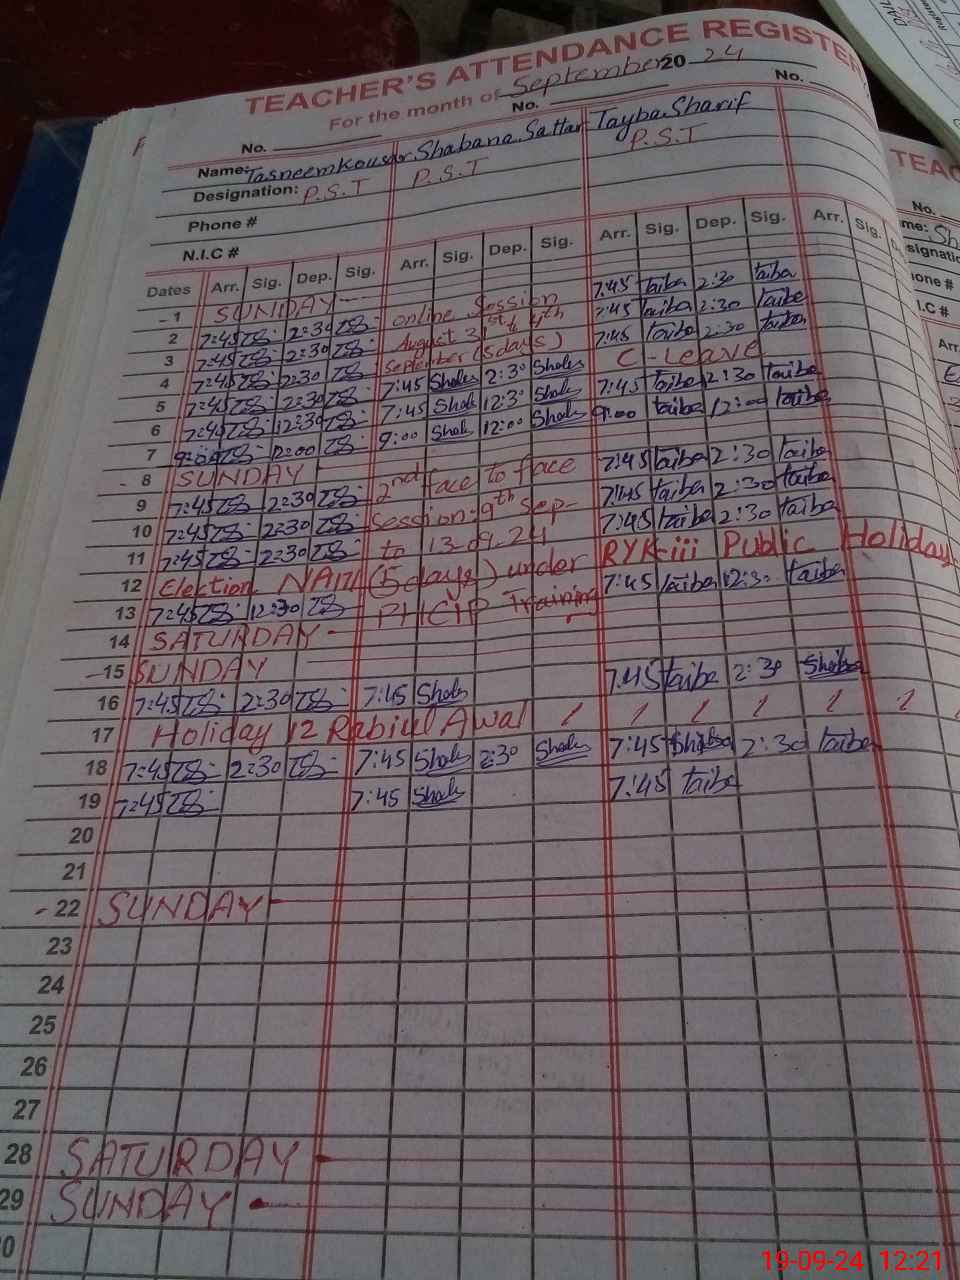 TEACHER'S ATTENDANCE REGISTER
For the month of September 20 24
No. No. No.
Name: Tasneem Kousar Shabana Sattar Tayba Sharif
Designation: P.S.T P.S.T P.S.T
Phone #
N.I.C #
Dates Arr. Sig. Dep. Sig. Arr. Sig. Dep. Sig. Arr. Sig. Dep. Sig. Arr. Sig.
1 SUNDAY
2 7:45 2:30 online Session 7:45 taiba 2:30 taiba
3 7:45 2:30 August 31st to 4th 7:45 taiba 2:30 taiba
4 7:45 2:30 September (5 days) 7:45 taiba 2:30 taiba
5 7:45 2:30 7:45 2:30 C-Leave
6 7:45 12:30 7:45 12:30 7:45 taiba 12:30 taiba
7 9:00 12:00 9:00 12:00 9:00 taiba 12:00 taiba
8 SUNDAY
9 7:45 2:30 2nd face to face 7:45 taiba 2:30 taiba
10 7:45 2:30 session: 9th Sep- 7:45 taiba 2:30 taiba
11 7:45 2:30 to 13-09-24 7:45 taiba 2:30 taiba
12 Election NA171 (5 days) under RYK-iii Public Holiday
13 7:45 12:30 PHCIP Training 7:45 taiba 12:30 taiba
14 SATURDAY
15 SUNDAY
16 7:45 2:30 7:45 7:45 taiba 2:30
17 Holiday 12 Rabiul Awal
18 7:45 2:30 7:45 2:30 7:45 2:30 taiba
19 7:45 7:45 7:45 taiba
20
21
22 SUNDAY
23
24
25
26
27
28 SATURDAY
29 SUNDAY
TEAC
No.
me: Sh
signatio
one #
I.C #
Arr.
19-09-24 12:21